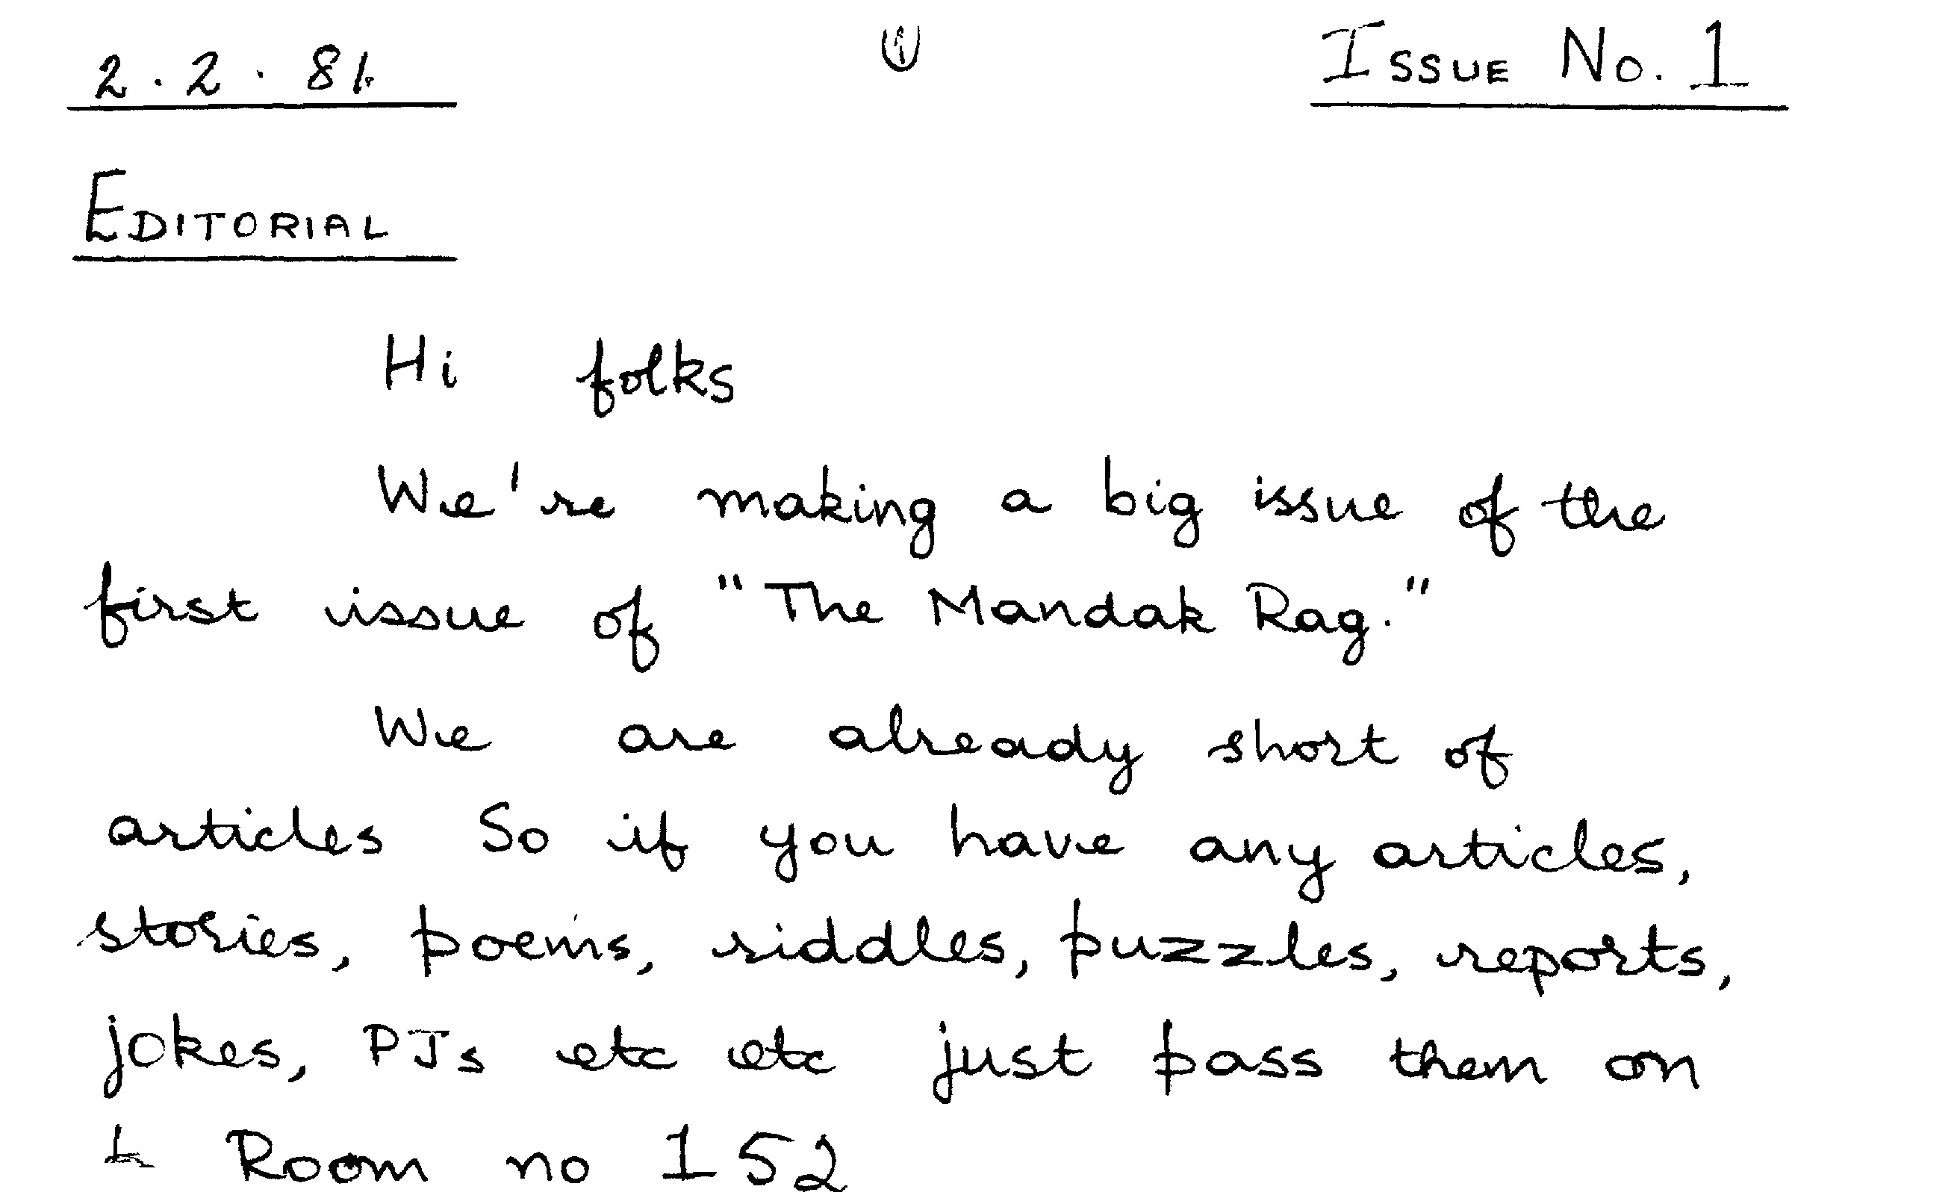 2.2.81.
1
Issue No. 1
Editorial
Hi folks
We're making a big issue of the
first issue of "The Mandak Rag."
We are already short of
articles So if you have any articles,
stories, poems, riddles, puzzles, reports,
jokes, PJs etc etc just pass them on
Room no 152